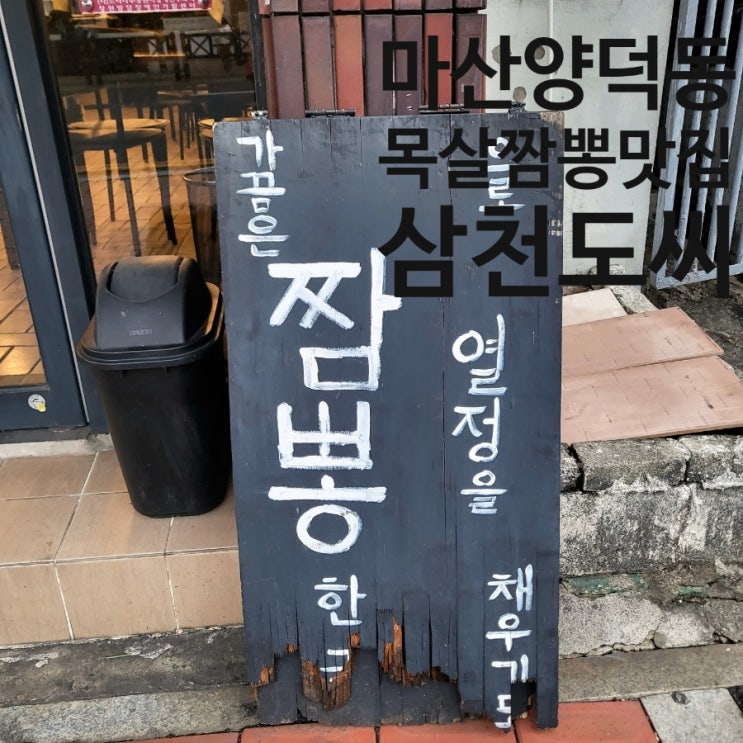 마산양덕동
목살짬뽕맛집
삼천도씨
가끔은
짬뽕
한
열정을
채우기